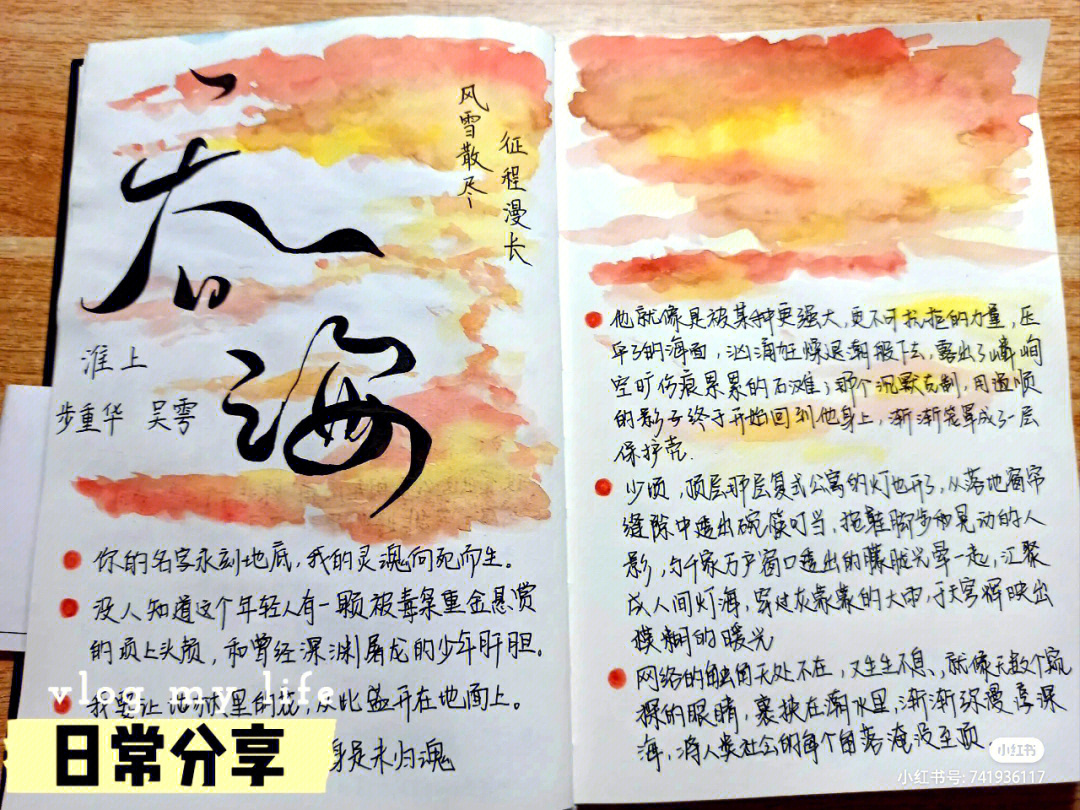 吞海
风雪散尽
征程漫长
淮上
步重华 吴雩
你的名字永刻地底，我的灵魂向死而生。
没人知道这个年轻人有一颗被毒枭重金悬赏
的项上头颅，和曾经深渊屠龙的少年肝胆。
我要让地狱里的花，从此盛开在地面上。
身是未归魂
vlog my life
日常分享
他就像是被某种更强大，更不可抗拒的力量，压
平了的海面，汹涌狂燥退潮般下去，露出了嶙峋
空旷伤痕累累的石滩；那个沉默克制，用温顺
的影子终于开始回到他身上，渐渐笼罩成了一层
保护壳.
少顷，顶层那层复式公寓的灯也开了，从落地窗帘
缝隙中透出碗筷叮当，拖鞋脚步和晃动的人
影，与千家万户窗口透出的朦胧光晕一起，汇聚
成人间灯海，穿过灰蒙蒙的大雨，于天穹辉映出
模糊的暖光
网络的触角无处不在，又生生不息、就像无数个窥
探的眼睛，裹挟在潮水里，渐渐弥漫
海，将人类社会的每个角落淹没至顶.
小红书
小红书号: 741936117